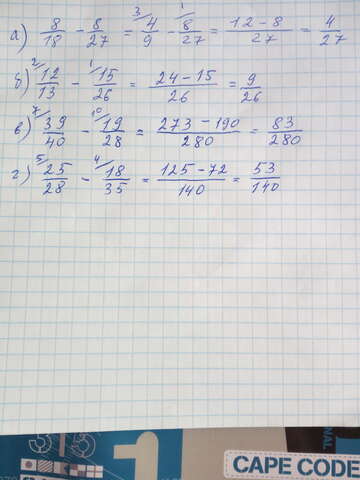 а) 8/18 - 8/27 = 3/ 4/9 - 1/ 8/27 = (12-8)/27 = 4/27
б) 2/ 12/13 - 1/ 15/26 = (24-15)/26 = 9/26
в) 7/ 39/40 - 10/ 19/28 = (273-190)/280 = 83/280
г) 5/ 25/28 - 4/ 18/35 = (125-72)/140 = 53/140
CAPE CODE